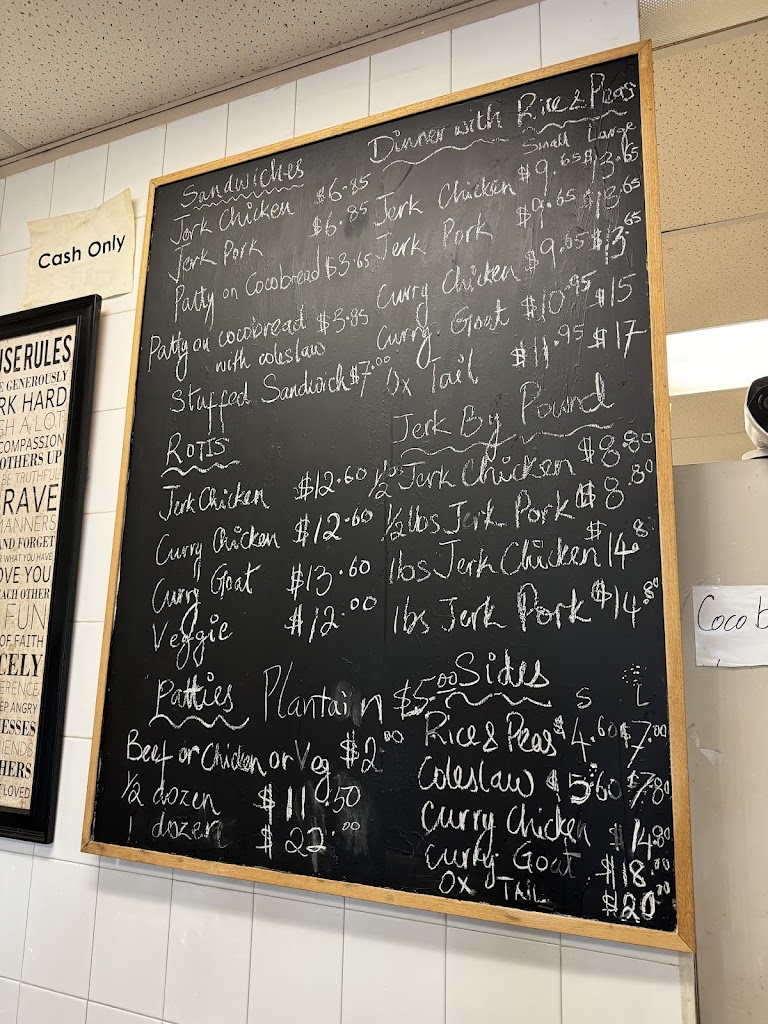 Cash Only
Sandwiches
Jerk Chicken $6.85
Jerk Pork $6.85
Patty on Cocobread $3.65
Patty on cocobread $3.85
with coleslaw
Stuffed Sandwich $7.00
Rotis
Jerk Chicken $12.60
Curry Chicken $12.60
Curry Goat $13.60
Veggie $12.00
Patties
Plantain $5.00
Beef or Chicken or Veg $2.00
1/2 dozen $11.50
1 dozen $22.00
Dinner with Rice & Peas
Small Large
Jerk Chicken $9.65 $13.65
Jerk Pork $9.65 $13.65
Curry Chicken $9.65 $13.65
Curry Goat $10.95 $15
Ox Tail $11.95 $17
Jerk By Pound
1/2 lbs Jerk Chicken $8.80
1/2 lbs Jerk Pork $8.80
lbs Jerk Chicken $14.8
lbs Jerk Pork $14.80
Sides
S L
Rice & Peas $4.60 $7.00
Coleslaw $5.60 $7.80
Curry Chicken $14.80
Curry Goat $18.00
OX TAIL $20.00
USE RULES
GENEROUSLY
RK HARD
H A LOT
COMPASSION
OTHERS UP
BE TRUTHFUL
RAVE
MANNERS
AND FORGET
WHAT YOU HAVE
OVE YOU
EACH OTHER
FUN
OF FAITH
CELY
ERENCE
EP ANGRY
ESSES
IENDS
HERS
LOVED
Coco b